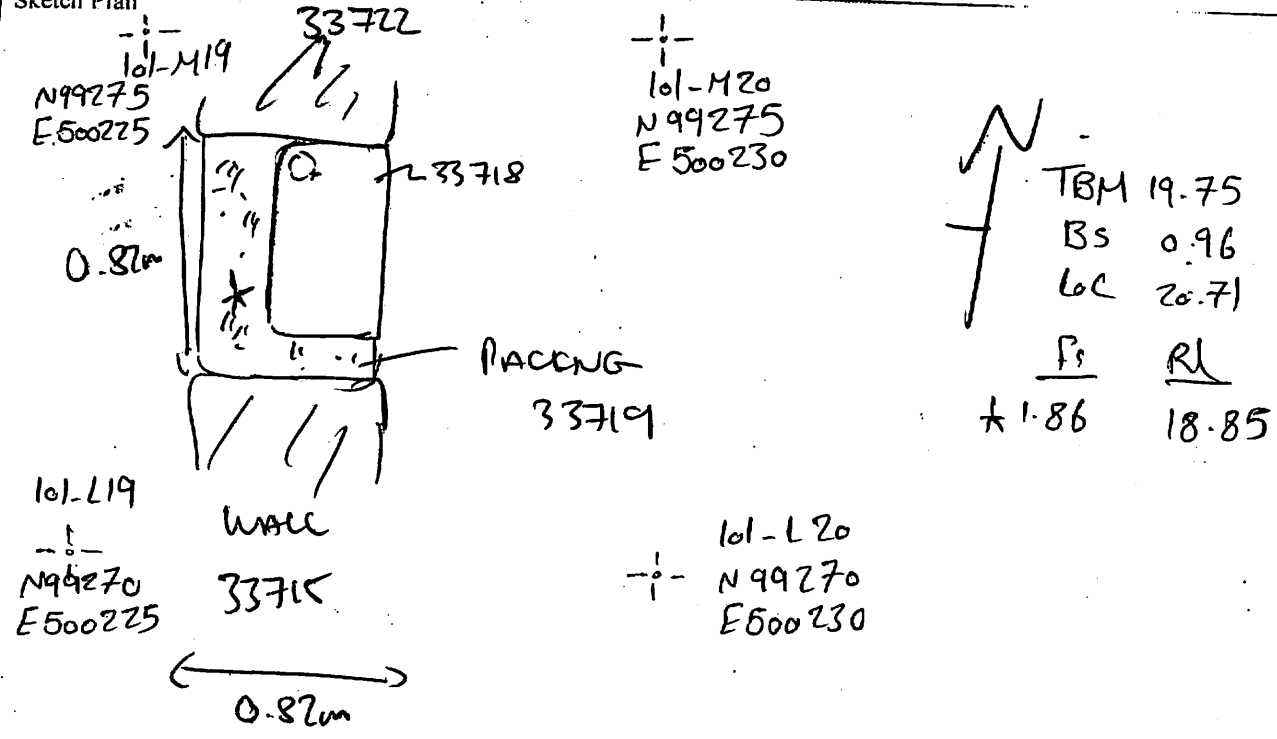 Sketch Plan
33722
101-M19
N99275
E.500225
101-M20
N99275
E500230
33718
0.82m
TBM 19.75
BS 0.96
LOC 20.71
FS RL
★ 1.86 18.85
PACKING
33719
101-L19
N99270
E500225
WALL
33715
101-L20
N99270
E500230
0.82m